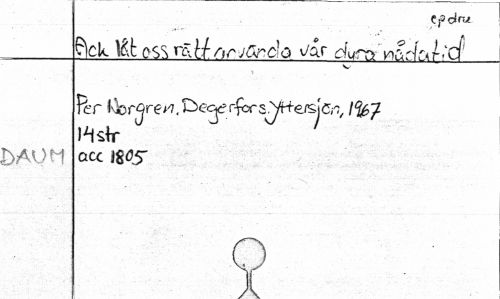 ep dru
Ack låt oss rätt använda vår dyra nådatid
Per Norgren, Degerfors, Yttersjön, 1967
14 str
DAUM acc 1805